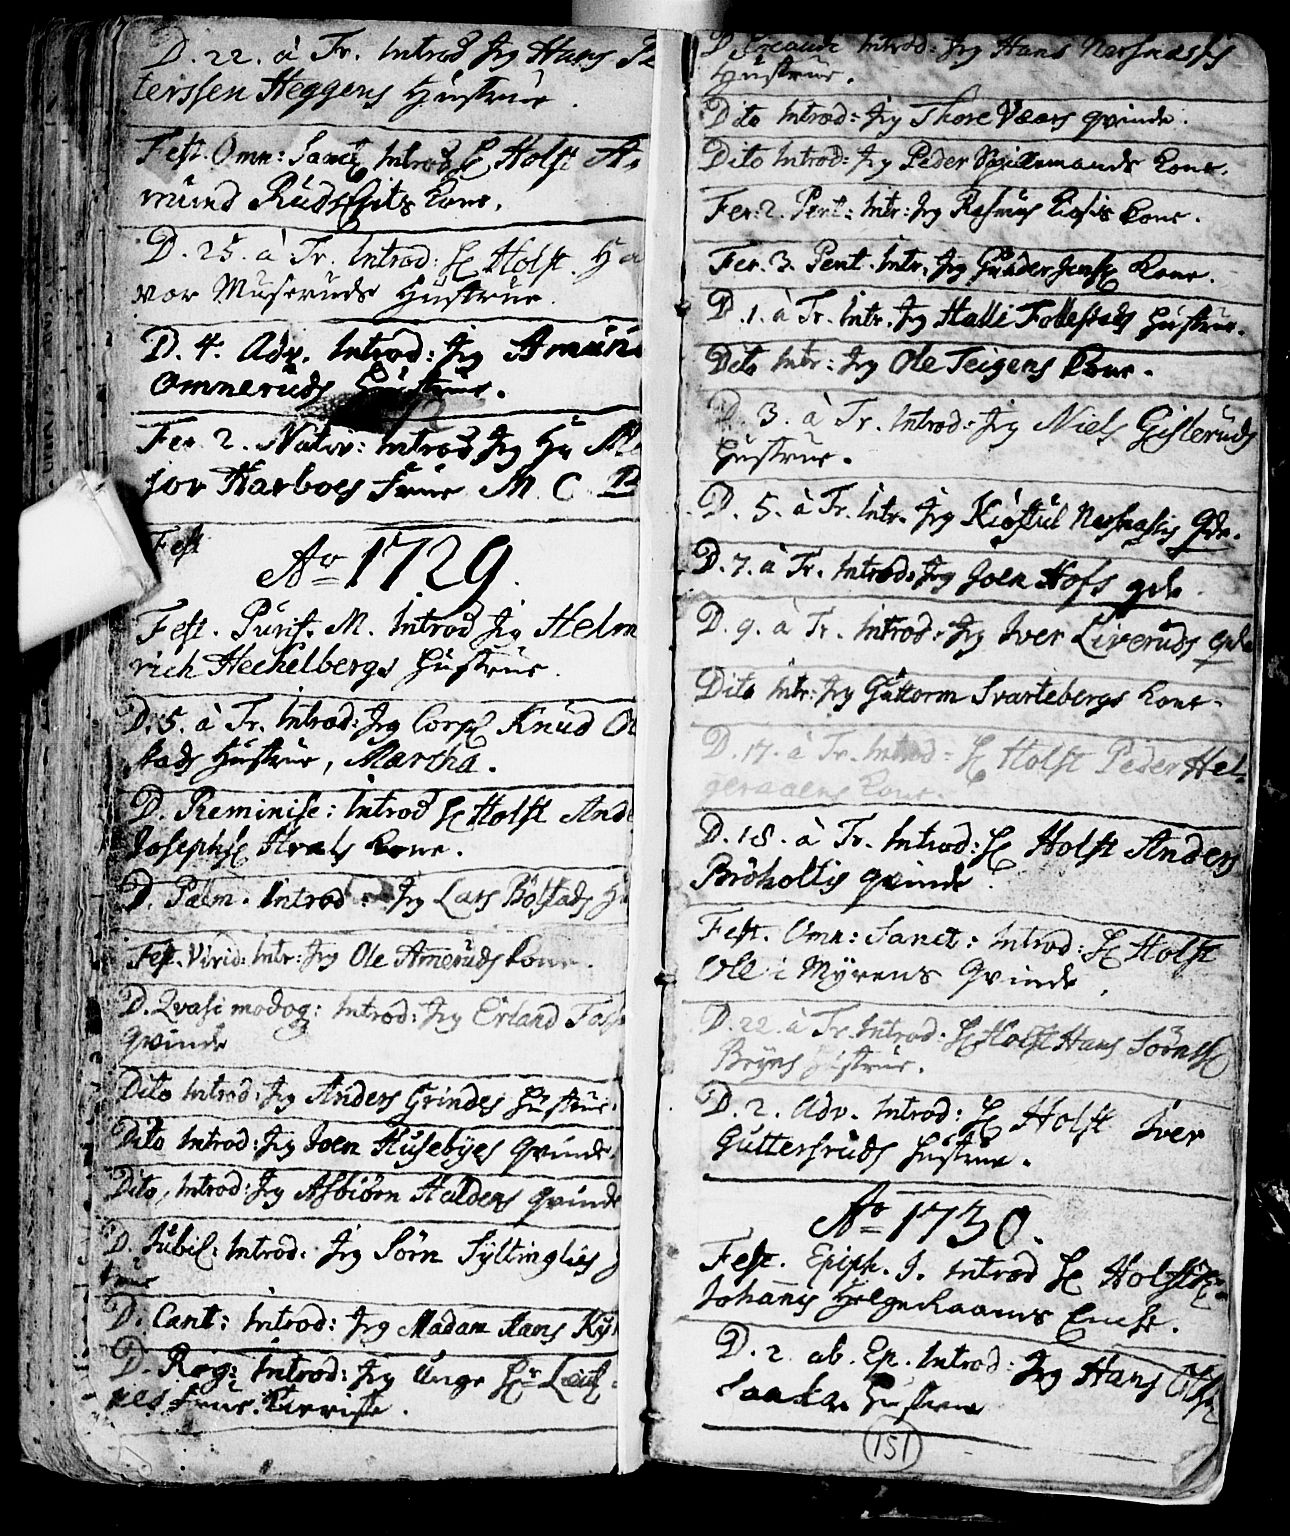 D. 22. à Tr. Introd Jeg Hans Pe
terssen Heggens Hustrue.
Fest. Omn: Sanct, Introd H Holst A
mund Rudshits Kone.
D. 25. à Tr. Introd: H Holst. Ha
vor Museruds Hustrue.
D. 4. Adv. Introd: Jeg Amund
Ommeruds Hustrue.
Fer. 2. Nativ: Introd Jeg Hr Ma
jor Harboes Frue M. C. B
Fest
Ao 1729.
Fest. Purif. M. Introd Jeg Helm
rich Heckelbergs Hustrue.
D. 5. à Tr. Introd: Jeg Corp Knud
stads Hustrue, Martha.
D. Reminisc: Introd H Holst Ande
Josephs Hvals Kone.
D. Palm. Introd: Jeg Lars Bolstads Hu
Fest. Virid: Intr: Jeg Ole Ameruds Kone.
D. Qvasi modog: Introd: Jeg Erland
Qvinde
Dito Introd: Jeg Anders Grindes Hustrue.
Dito Introd: Jeg Joen Husebyes Qvinde
Dito, Introd: Jeg Asbiørn Haldens Qvinde
D. Jubil: Introd: Jeg Sørn Syltinglies
true
D. Cant: Introd: Jeg Madam Hans
D. Rog: Introd: Jeg Unge Hr
Frue.
D. Exaudi Introd: Jeg Hans Nersnæss
Hustrue.
Dito Introd: Jeg Thore Væars qvinde.
Dito Introd: Jeg Peder Spillemands Kone.
Fer: 2. Pent: Intr: Jeg Rasmus Kone.
Fer. 3. Pent. Intr. Jeg Gunder Jens Kone.
D. 1. à Tr. Intr. Jeg Halle Follestads Hustrue.
Dito Intr: Jeg Ole Teigens Kone.
D. 3. à Tr. Introd: Jeg Niels Gisleruds
Hustrue.
D. 5. à Tr. Intr. Jeg Kiøstul Nersnæsis Qde.
D. 7. à Tr. Introd: Jeg Joen Hofs qde.
D. 9. à Tr. Introd: Jeg Iver Liveruds Qde
Dito Intr: Jeg Guttorm Svartebergs Kone.
D. 17. à Tr. Introd: H Holst Peder Hel-
geraaens Kone.
D. 18. à Tr. Introd: H Holst Anders
Brøholtis qvinde.
Fest. Omn: Sanct: Introd: H Holst
Ole i Myrens Qvinde.
D. 22. à Tr. Introd: H Holst Hans Sørens
Bryns Hustrue.
D. 2. Adv. Introd: H Holst Iver
Guttersruds Hustrue.
Ao 1730.
Fest. Epiph. I. Introd H Holst
Johannis Helgeraaens Enche.
D. 2. ab. Ep. Introd: Jeg Hans
Hustrue
151